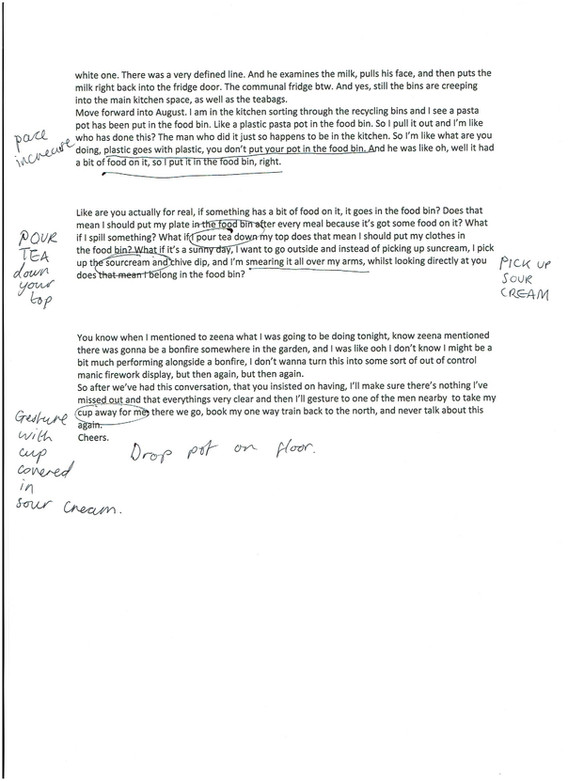 white one. There was a very defined line. And he examines the milk, pulls his face, and then puts the
milk right back into the fridge door. The communal fridge btw. And yes, still the bins are creeping
into the main kitchen space, as well as the teabags.
Move forward into August. I am in the kitchen sorting through the recycling bins and I see a pasta
pot has been put in the food bin. Like a plastic pasta pot in the food bin. So I pull it out and I'm like
who has done this? The man who did it just so happens to be in the kitchen. So I'm like what are you
doing, plastic goes with plastic, you don't put your pot in the food bin. And he was like oh, well it had
a bit of food on it, so I put it in the food bin, right.
pace
increase
Like are you actually for real, if something has a bit of food on it, it goes in the food bin? Does that
mean I should put my plate in the food bin after every meal because it's got some food on it? What
if I spill something? What if I pour tea down my top does that mean I should put my clothes in
the food bin? What if it's a sunny day, I want to go outside and instead of picking up suncream, I pick
up the sourcream and chive dip, and I'm smearing it all over my arms, whilst looking directly at you
does that mean I belong in the food bin?
POUR
TEA
down
your
top
PICK UP
SOUR
CREAM
You know when I mentioned to zeena what I was going to be doing tonight, know zeena mentioned
there was gonna be a bonfire somewhere in the garden, and I was like ooh I don't know I might be a
bit much performing alongside a bonfire, I don't wanna turn this into some sort of out of control
manic firework display, but then again, but then again.
So after we've had this conversation, that you insisted on having, I'll make sure there's nothing I've
missed out and that everythings very clear and then I'll gesture to one of the men nearby to take my
cup away for me, there we go, book my one way train back to the north, and never talk about this
again.
Cheers.
Gesture
with
cup
covered
in
sour cream.
Drop pot on floor.